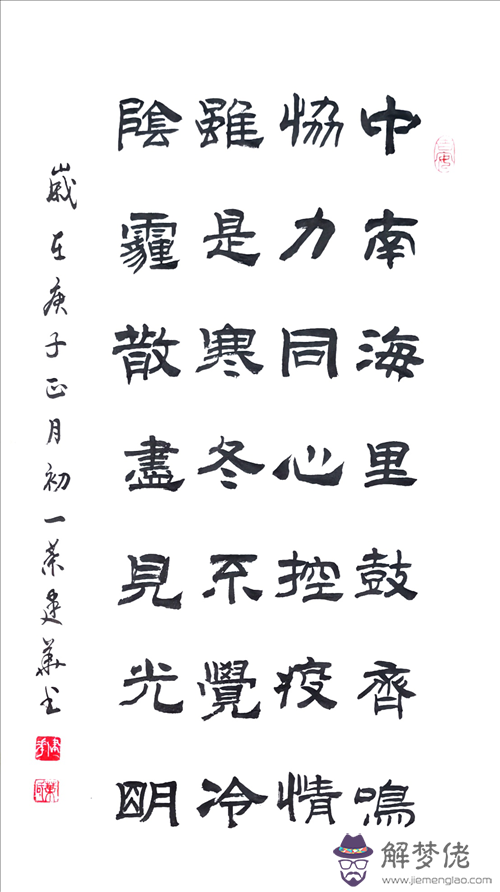 中南海里鼓齊鳴
協力同心控疫情
雖是寒冬不覺冷
陰霾散盡見光明
歲在庚子正月初一荣建華书
解梦佬
www.jiemenglao.com